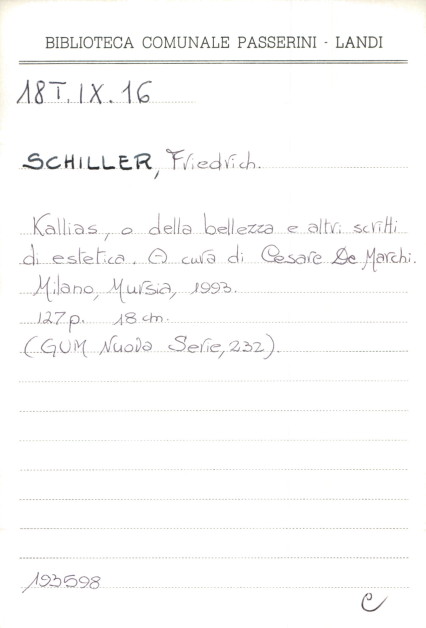 BIBLIOTECA COMUNALE PASSERINI - LANDI
18T.IX.16
SCHILLER, Friedrich.
Kallias, o della bellezza e altri scritti
di estetica. A cura di Cesare De Marchi.
Milano, Mursia, 1993.
127 p. 18 cm.
(GUM Nuova Serie, 232).
193598
C